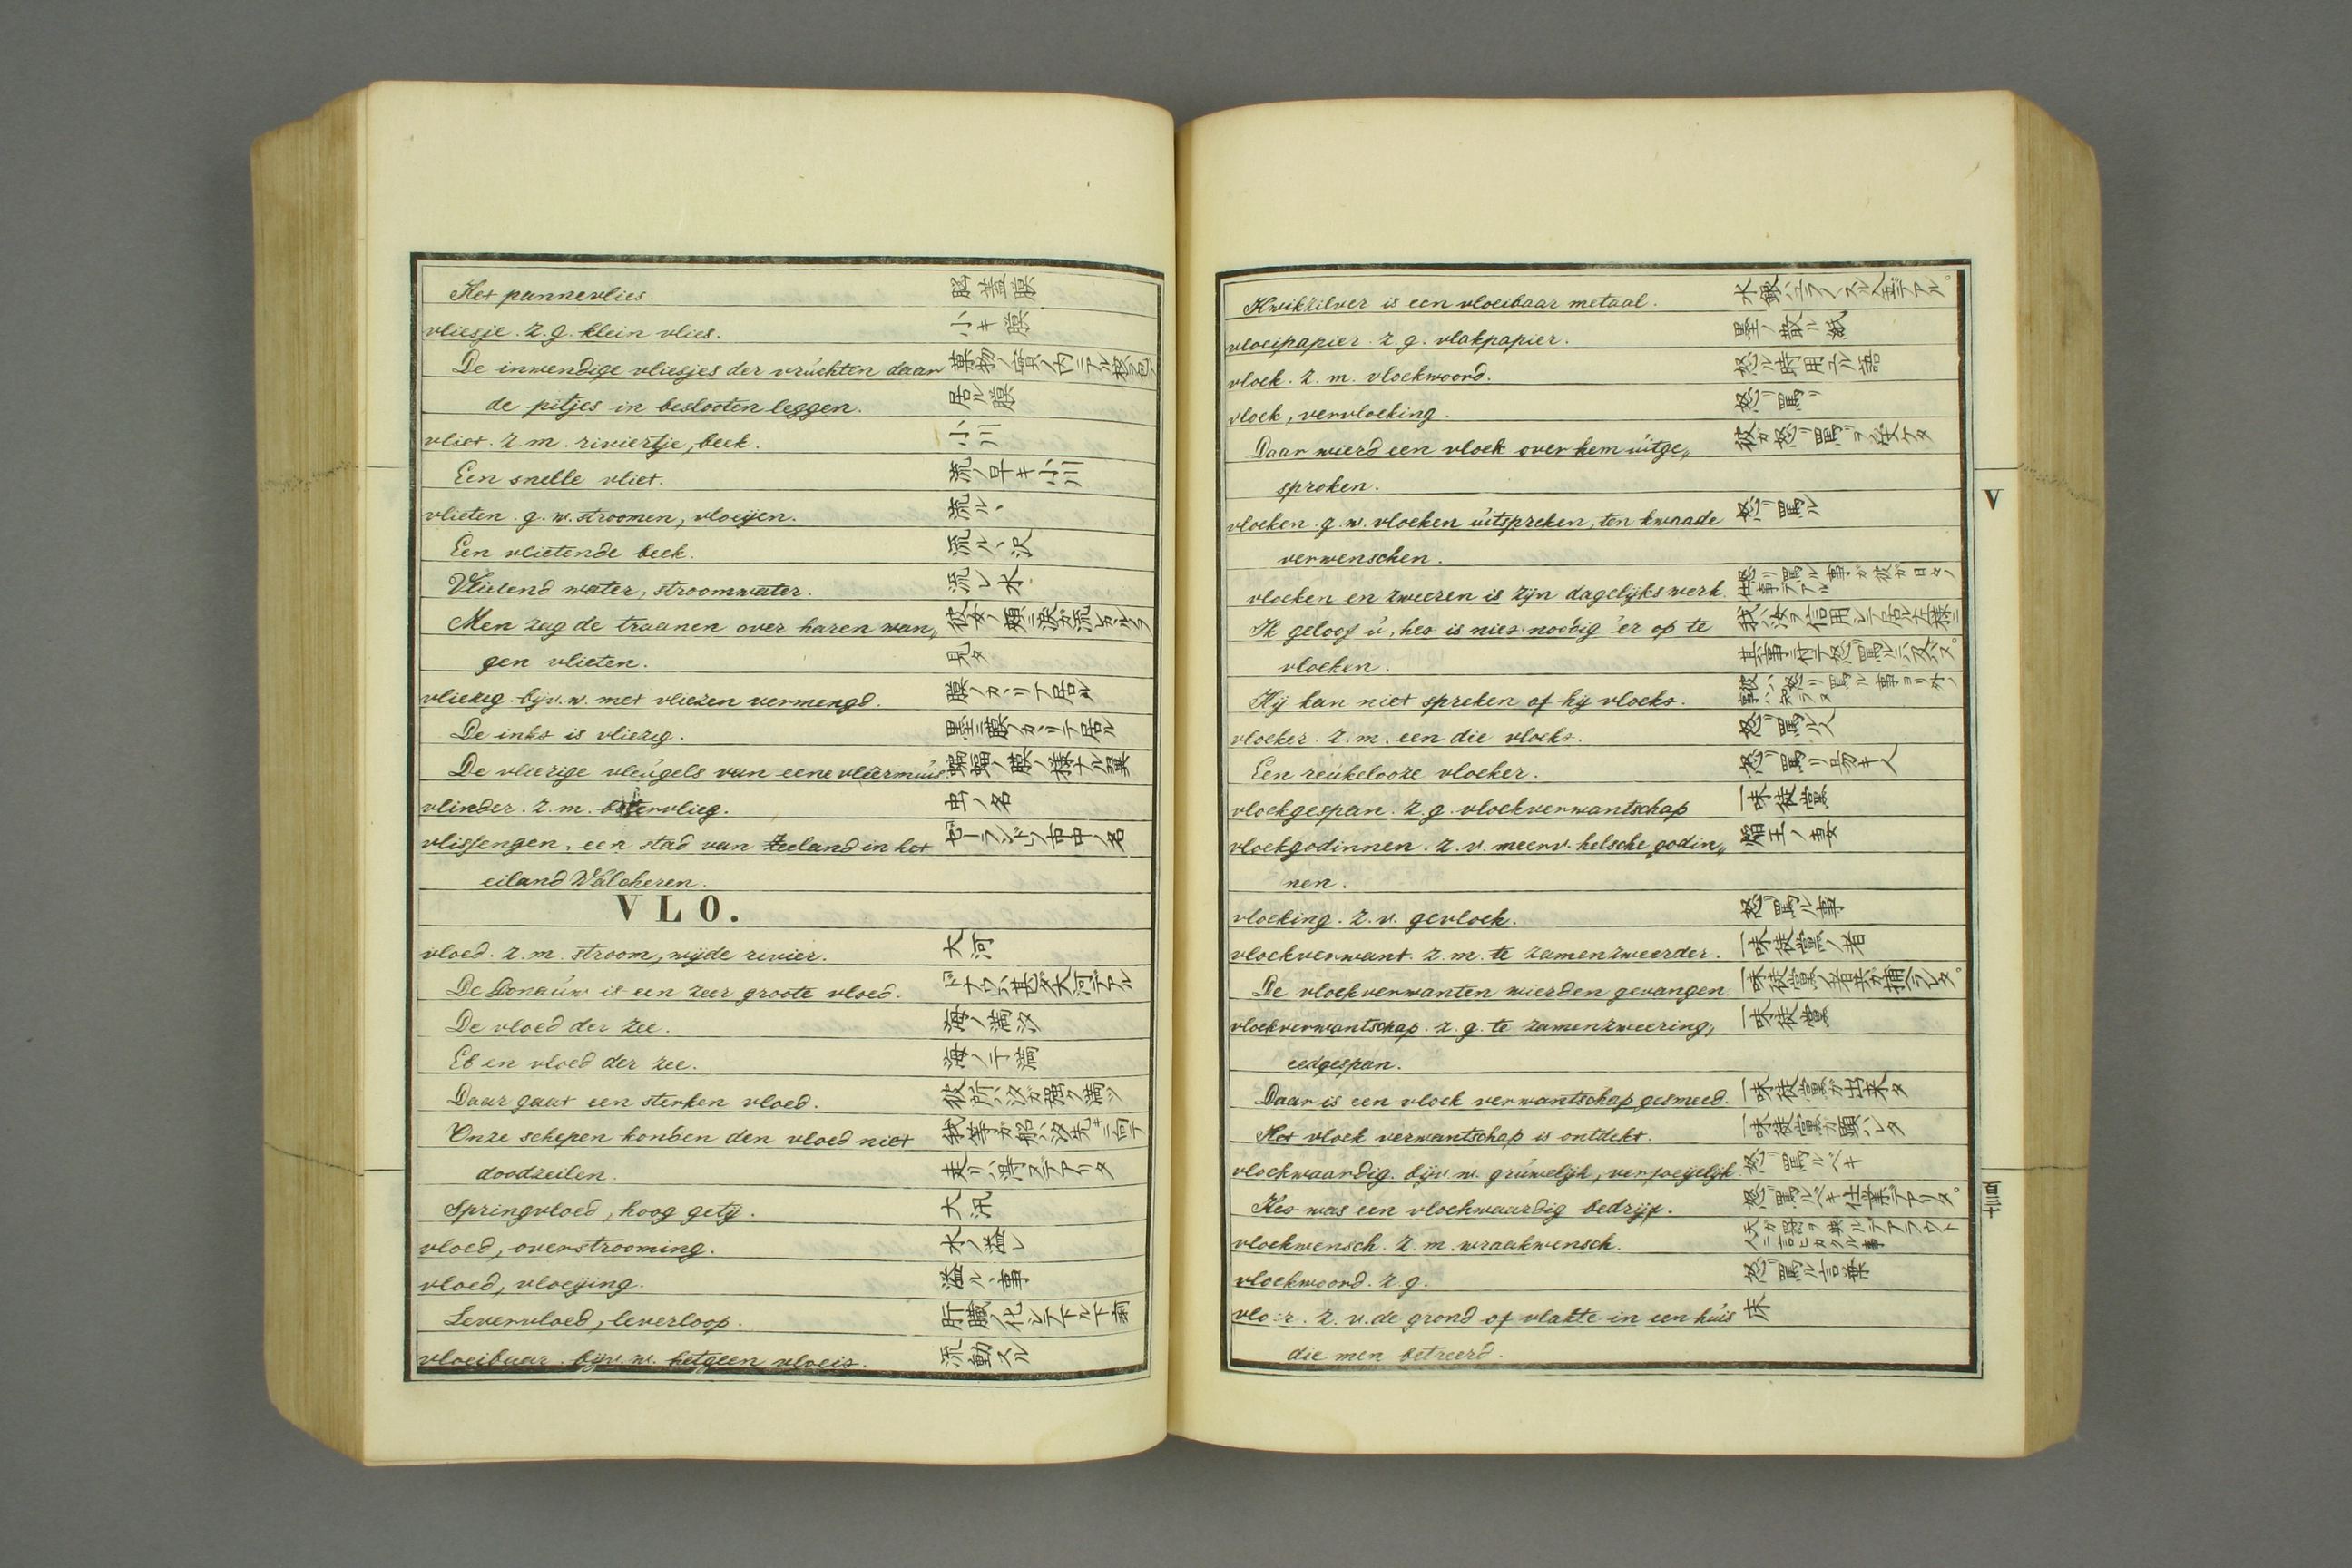 Het pannevlies. 脳蓋膜
vliesje. z. g. klein vlies. 小キ膜
De inwendige vliesjes der vrúchten daar 菓物ノ實ノ内ニアル核ヲ包テ
de pitjes in beslooten leggen. 居ル膜
vliet. z. m. riviertje, beek. 小川
Een snelle vliet. 流ノ早キ小川
vlieten. g. w. stroomen, vloeijen. 流ル丶
Een vlietende beek. 流ル丶沢
Vlietend water, stroomwater. 流レ水
Men zag de traanen over haren wan„ 彼女ノ頬ニ涙ガ流レタルヲ
gen vlieten. 見タ
vliezig. bijv. w. met vliezen vermengd. 膜ノカヽリテ居ル
De inkt is vliezig. 墨ニ膜ノカヽリテ居ル
De vliezige vleúgels van eene vliermúis 蝙蝠ノ膜ノ様ナル翼
vlinder. z. m. botervlieg. 虫ノ名
vlissengen, een stad van Zeeland in het ゼーランドノ市中ノ名
eiland Walcheren.
VLO.
vloed. z. m. stroom, wijde rivier. 大河
De Donaúw is een zeer groote vloed. ドナウハ甚ダ大河デアル
De vloed der zee. 海ノ満汐
Eb en vloed der zee. 海ノ干満
Daar gaat een sterken vloed. 彼所ハ汐ガ強ク満ツ
Onze schepen konden den vloed niet 我等ガ船ハ汐先キニ向テ
doodzeilen. 走リ得ズデアリタ
Springvloed, hoog getij. 大汛
vloed, overstrooming. 水ノ溢レ
vloed, vloeijing. 溢ル丶事
Levervloed, leverloop. 肝臓ノ化シテ下ル下痢
vloeibaar. bijv. w. hetgeen vloeit. 流動スル
Kwikzilver is een vloeibaar metaal. 水銀ハ
vloeipapier. z. g. vlakpapier. 墨ノ散ル紙
vloek. z. m. vloekwoord. 怒ル時用ル語
vloek, vervloeking. 怒リ罵リ
Daar wierd een vloek over hem úitge„ 彼ガ怒リ罵リヲ受ケタ
sproken.
vloeken. g. w. vloeken úitspreken, ten kwaade 怒リ罵ル
verwenschen.
vloeken en zweeren is zijn dagelijks werk. 怒リ罵ル事ガ彼ガ日々ノ仕事デアル
Ik geloof ú, het is niet noódig 'er op te 我ハ汝ヲ信用シテ居ル左様ニ
vloeken. 其事ニ付テ怒罵ルニ及バヌ。
Hij kan niet spreken of hij vloekt. 彼ハ怒リ罵ル事ヨリ外ノ事ハ知ラヌ
vloeker. z. m. een die vloekt. 怒リ罵ル人
Een reúkelooze vloeker. 怒リ罵リ易キ人
vloekgespan. z. g. vloekverwantschap 一味徒黨
vloekgodinnen. z. v. meerv. helsche godin„ 王ノ妻
nen.
vloeking. z. v. gevloek. 怒リ罵ル事
vloekverwant. z. m. te zamenzweerder. 一味徒黨ノ者
De vloekverwanten wierden gevangen. 一味徒黨ノ者共ガ捕ヘラレタ。
vloekverwantschap. z. g. te zamenzweering, 一味徒黨
eedgespan.
Daar is een vloek verwantschap gesmeed. 一味徒黨ガ出来タ
Het vloek verwantschap is ontdekt. 一味徒黨ガ顕ハレタ
vloekwaardig. bijv. w. grúwelijk, verfoeijelijk. 怒リ罵ルベキ
Het was een vloekwaardig bedrijf. 怒リ罵ルベキ仕業デアリタ。
vloekwensch. z. m. wraakwensch. 天ガ罸ヲ與ルデアラウト人ニ言ヒカクル事
vloekwoord. z. g. 怒リ罵ル言葉
vloer. z. v. de grond of vlakte in een húis 床
die men betreerd.
V